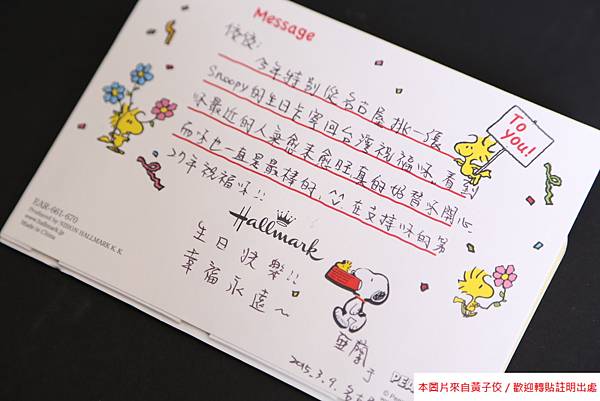 Message
佼佼:
今年特別從名古屋挑一張
Snoopy的生日卡寄回台灣祝福你 看到
你最近的人氣愈來愈旺真的好替你開心
而你也一直是最棒的. ^^ 在支持你的第
27年祝福你!!
To you!
Hallmark
生日快樂!!
幸福永遠~
EAR-661-670
Produced by NIHON HALLMARK K. K.
www.hallmark.jp
Made in China
2015.3.9.
本圖片來自黃子佼 / 歡迎轉貼註明出處